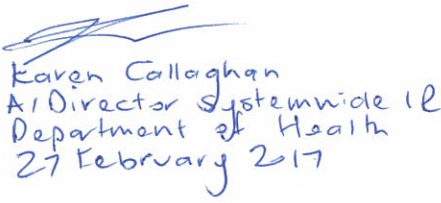 Karen Callaghan
A/Director Systemwide IR
Department of Health
27 February 2017